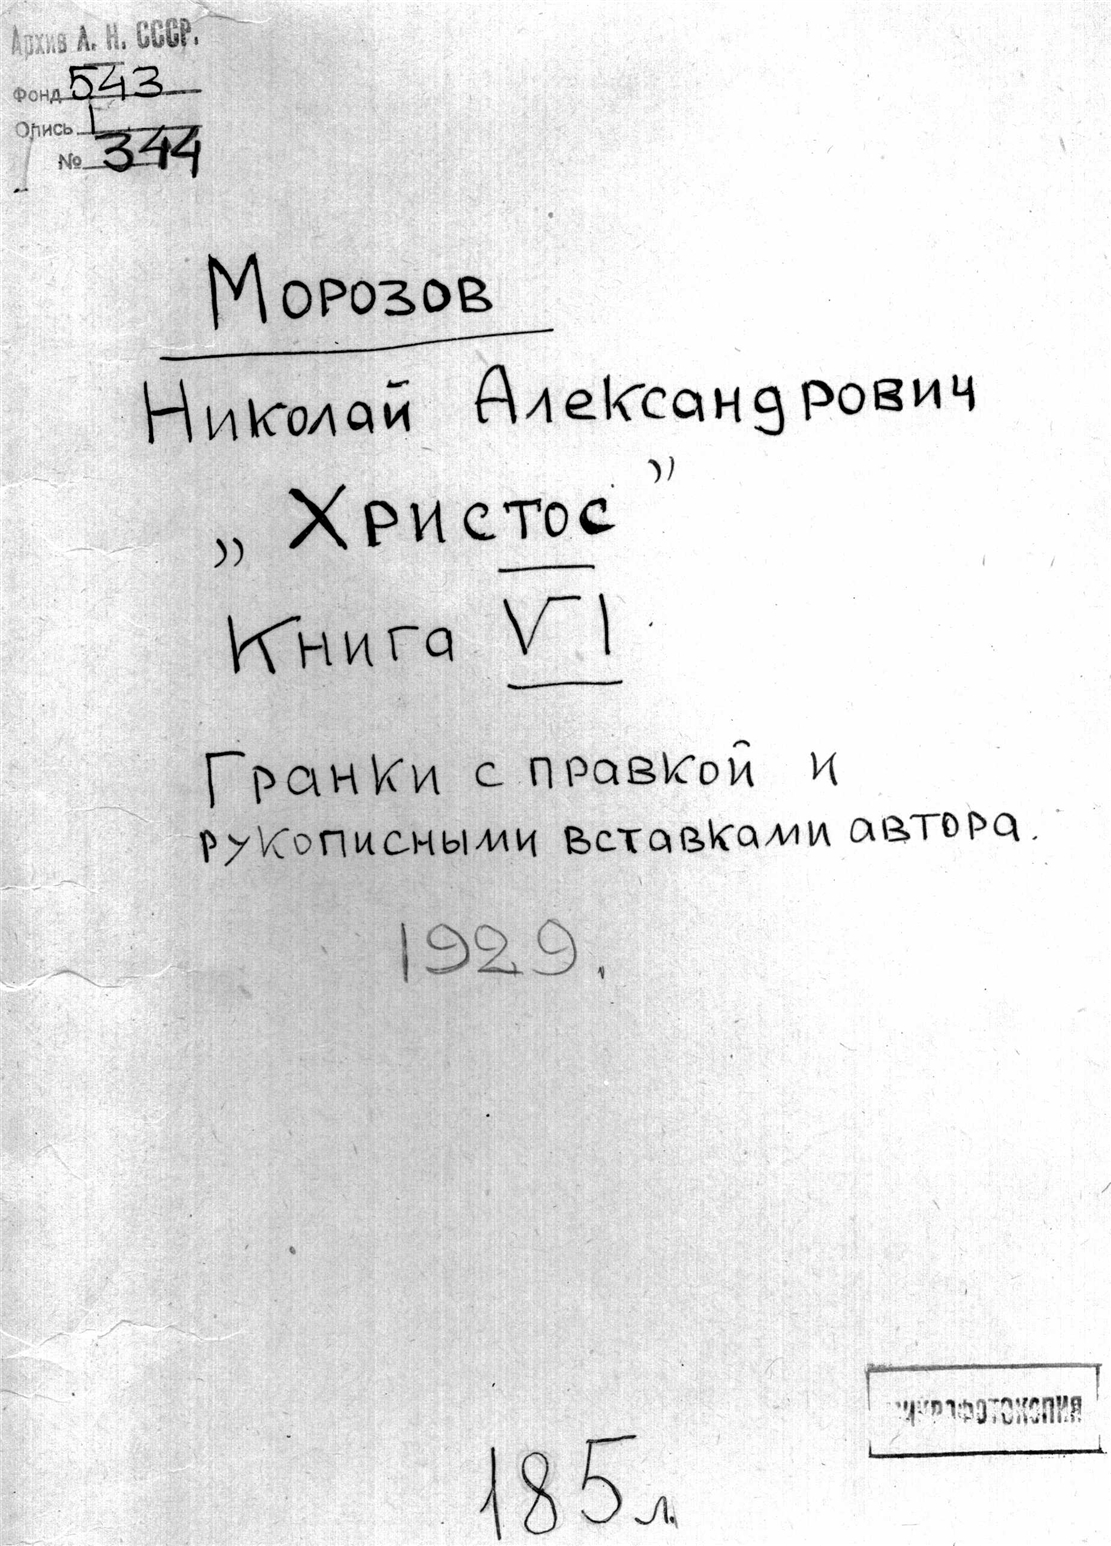 Архив А. Н. СССР.
Фонд 543
Опись 1
№ 344
Морозов
Николай Александрович
„Христос”
Книга VI
Гранки с правкой и
рукописными вставками автора.
1929.
МИКРОФОТОКОПИЯ
185 л.